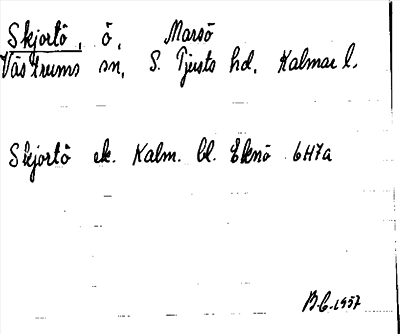 Skjortö, ö, Marsö
Västrums sn, S. Tjusts hd. Kalmar l.
Skjortö ek. Kalm. bl. Eknö 6H7a
B.C. 1957